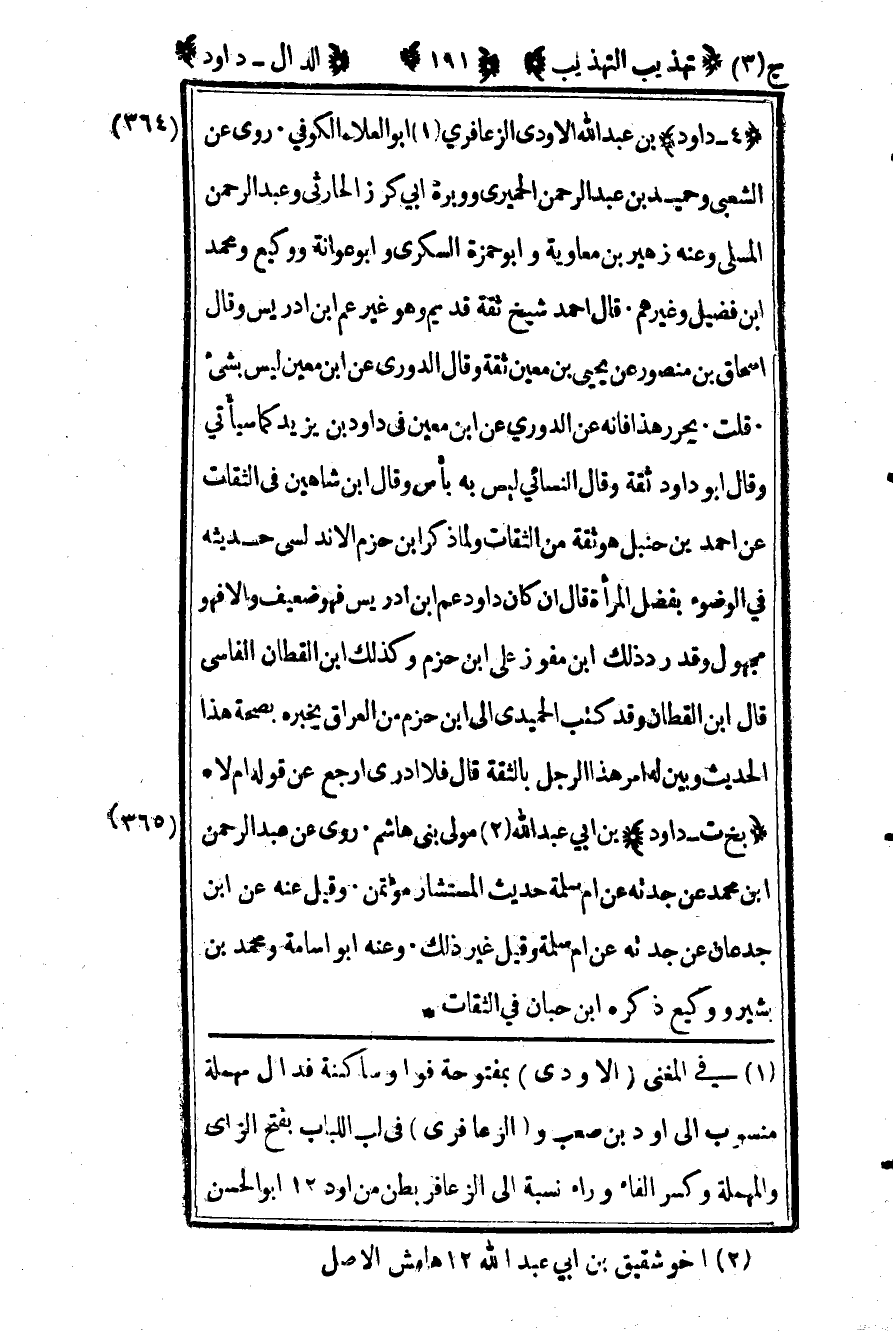 ج(٣) ﴿ تهذيب التهذيب ﴾ ﴿ ١٩١ ﴾ ﴿ الدال ـ داود ﴾
(٣٦٤) ﴿٤ـ داود﴾ بن عبدالله الاودى الزعافري (١) ابوالعلاء الكوفي ٠ روى عن
الشعبى وحميد بن عبدالرحمن الحميرى ووبرة ابي كرز الحارثى وعبدالرحمن
المسلى وعنه زهير بن معاوية و ابوحمزة السكرى و ابوعوانة ووكيع ومحمد
ابن فضيل وغيرهم ٠ قال احمد شيخ ثقة قديم وهو غير عم ابن ادريس وقال
اسحاق بن منصور عن يحيى بن معين ثقة وقال الدورى عن ابن معين ليس بشئ
٠ قلت ٠ يحرر هذا فانه عن الدوري عن ابن معين فى داود بن يزيد كما سيأتي
وقال ابو داود ثقة وقال النسائي ليس به بأس وقال ابن شاهين فى الثقات
عن احمد بن حنبل هو ثقة من الثقات ولما ذكر ابن حزم الاندلسى حديثه
في الوضوء بفضل المرأة قال ان كان داود عم ابن ادريس فهو ضعيف والا فهو
مجهول وقد رد ذلك ابن مفوز على ابن حزم وكذلك ابن القطان الفاسى
قال ابن القطان وقد كتب الحميدى الى ابن حزم من العراق يخبره بصحة هذا
الحديث وبين له امر هذا الرجل بالثقة قال فلا ادرى ارجع عن قوله ام لا ٠
(٣٦٥) ﴿ بخ ت ـ داود ﴾ بن ابي عبدالله (٢) مولى بنى هاشم ٠ روى عن عبدالرحمن
ابن محمد عن جدته عن ام سلمة حديث المستشار موتمن ٠ وقيل عنه عن ابن
جدعان عن جدته عن ام سلمة وقيل غير ذلك ٠ وعنه ابو اسامة ومحمد بن
بشير ووكيع ذكره ابن حبان في الثقات ٠
(١) ـ في المغنى (الاودى) بمفتوحة فواو ساكنة فدال مهملة
منسوب الى اود بن صعب و (الزعافرى) فى لب اللباب بفتح الزاى
والمهملة وكسر الفاء وراء نسبة الى الزعافر بطن من اود ١٢ ابوالحسن
(٢) اخو شقيق بن ابي عبد الله ١٢ هامش الاصل